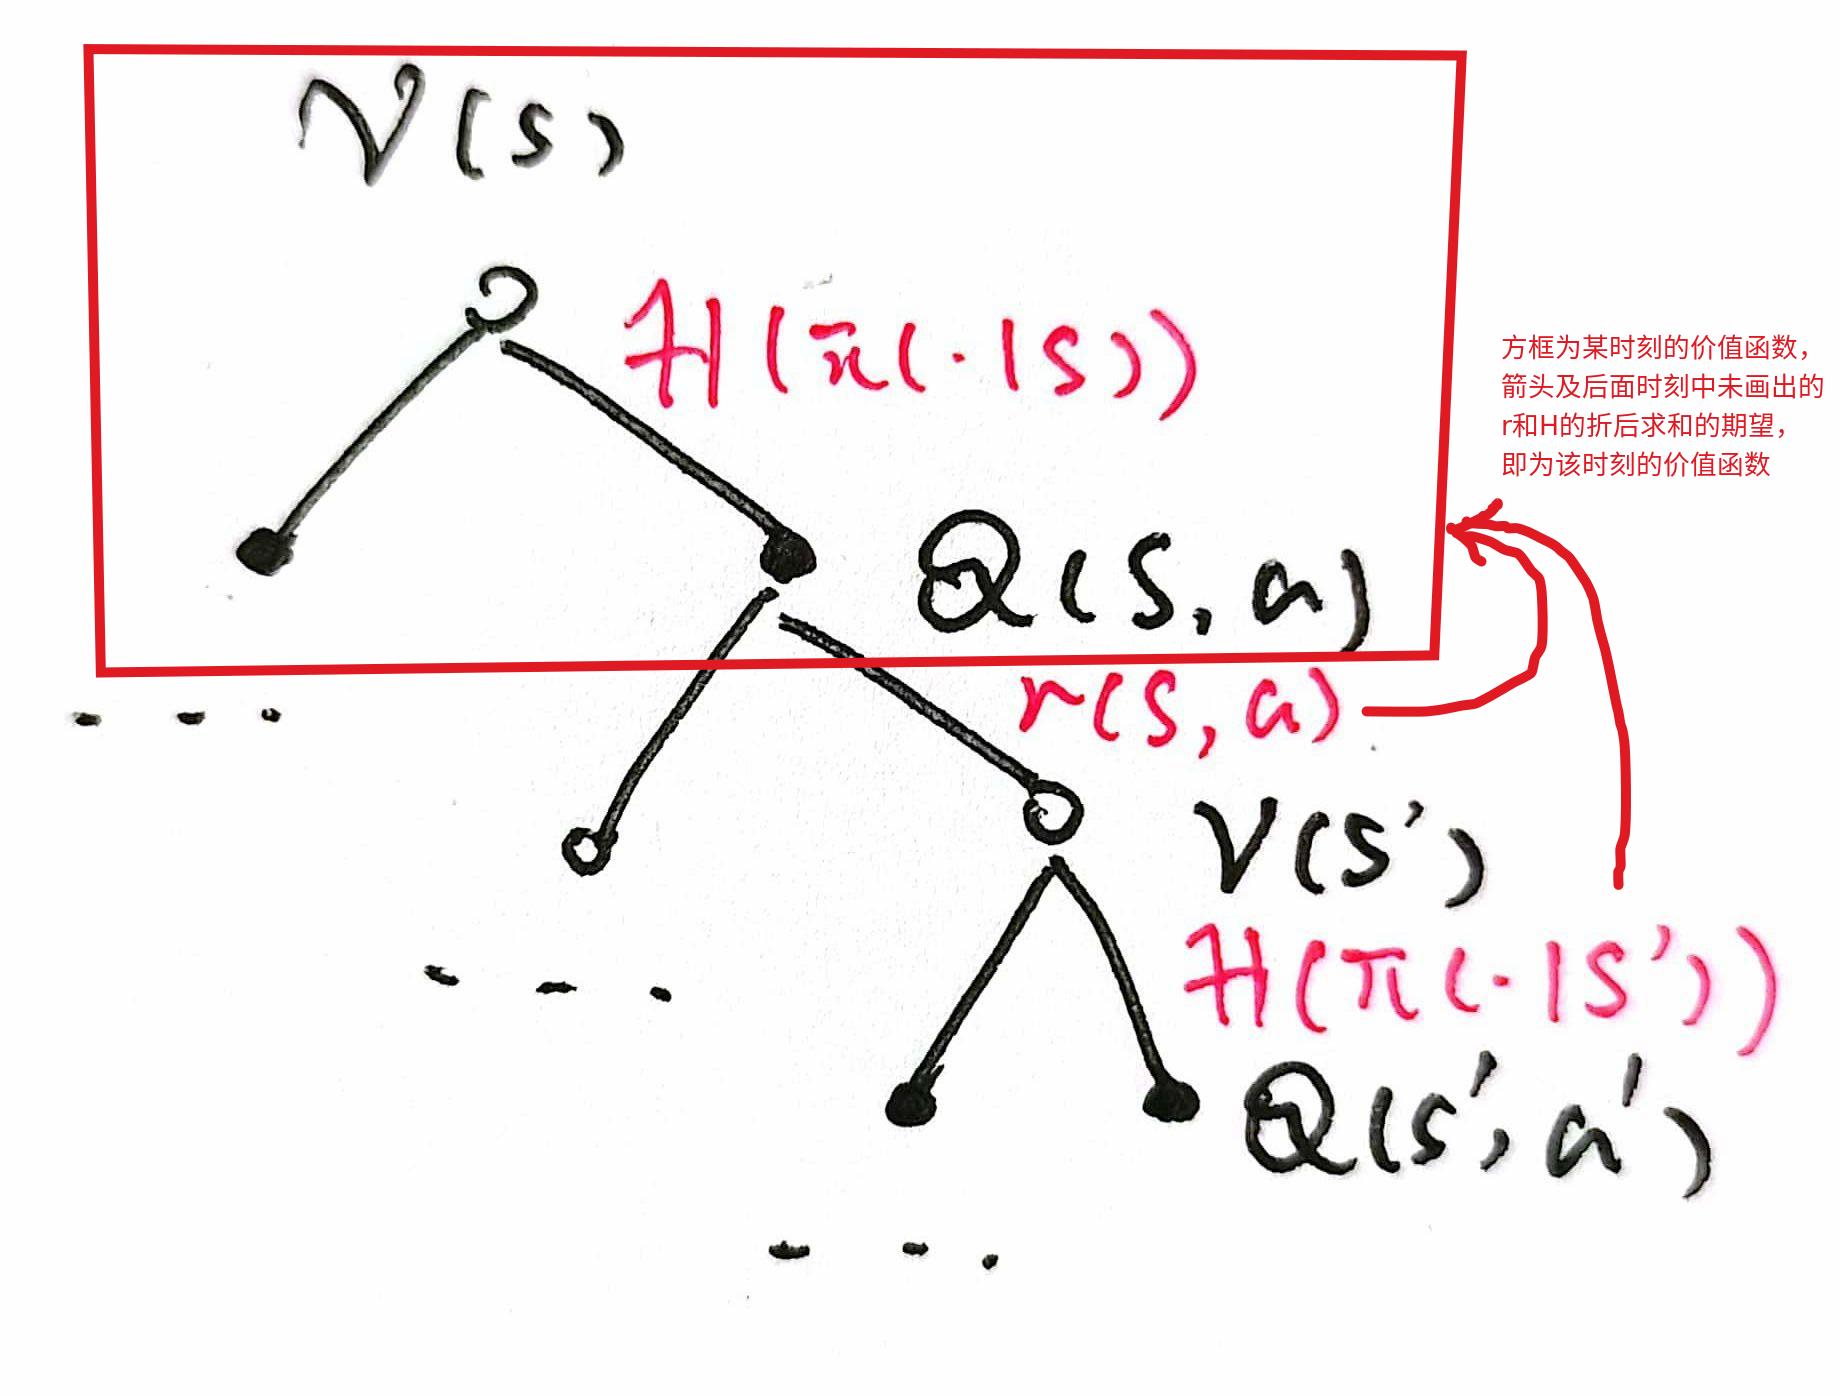 V(s)
H(π(·|s))
方框为某时刻的价值函数，
箭头及后面时刻中未画出的
r和H的折后求和的期望，
即为该时刻的价值函数
Q(s,a)
r(s,a)
V(s')
H(π(·|s'))
Q(s',a')